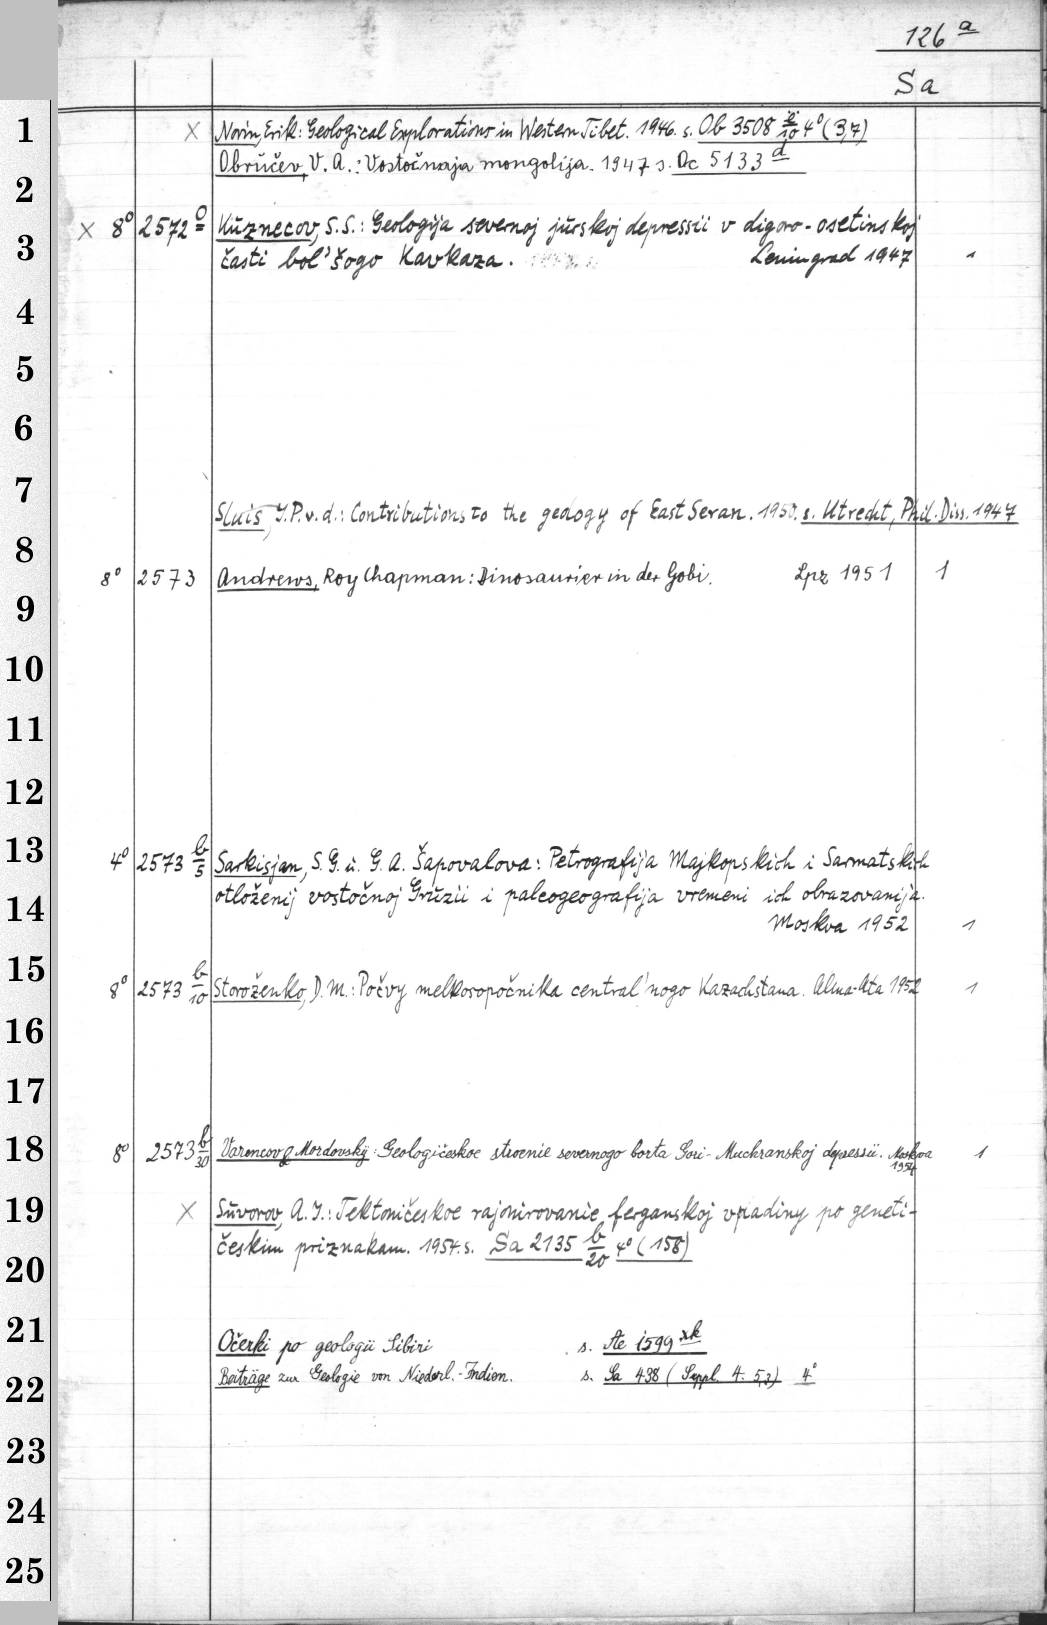 126 a
Sa
1
× Norin, Erik: Geological Explorations in Western Tibet. 1946. s. Ob 3508 10 4° (3,7)
Obručev, V. A.: Vostočnaja mongolija. 1947 s. Oc 5133 d
2
× 8° 2572 o Kuznecov, S. S.: Geologija severnoj jurskoj depressii v digoro-osetinskoj
3
časti bol'šogo Kavkaza. Leningrad 1947 1
4
5
6
7
Sluis, J. P. v. d.: Contributions to the geology of East Seran. 1950. s. Utrecht, Phil. Diss. 1947
8
8° 2573 Andrews, Roy Chapman: Dinosaurier in der Gobi. Lpz 1951 1
9
10
11
12
13
4° 2573 b/5 Sarkisjan, S. G. u. G. A. Šapovalova: Petrografija Majkopskich i Sarmatskich
otloženij vostočnoj Gruzii i paleogeografija vremeni ich obrazovanija.
14
Moskva 1952 1
15
8° 2573 b/10 Storoženko, D. M.: Počvy melkosopočnika central'nogo Kazachstana. Alma-Ata 1952 1
16
17
18
8° 2573 b/30 Varencov & Mordovskij: Geologičeskoe stroenie severnogo borta Gori-Muchranskoj depressii. Moskva 1954 1
19
× Suvorov, A. I.: Tektoničeskoe rajonirovanie ferganskoj vpadiny po geneti-
českim priznakam. 1954. s. Sa 2135 b/20 4° (158)
20
21
Očerki po geologii Sibiri s. Ae 1599 xk
22
Beiträge zur Geologie von Niederl.-Indien. s. Sa 438 (Suppl. 4. 5,2) 4°
23
24
25